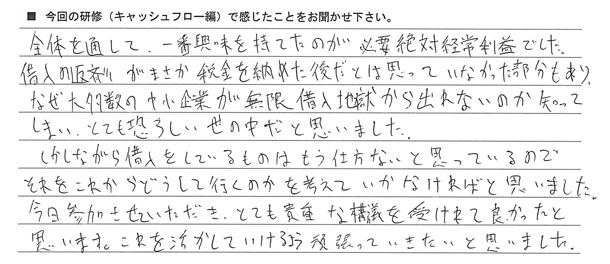 ■ 今回の研修（キャッシュフロー編）で感じたことをお聞かせ下さい。
全体を通して、一番興味を持てたのが必要絶対経常利益でした。
借入の返済がまさか税金を納めた後だとは思っていなかった部分もあり、
なぜ大多数の中小企業が無限借入地獄から出れないのか知って
しまい、とても恐ろしい世の中だと思いました。
しかしながら借入をしているものはもう仕方ないと思っているので
それをこれからどうして行くのかを考えていかなければと思いました。
今日参加させていただき、とても貴重な講義を受けれて良かったと
思います。これを活かしていけるよう頑張っていきたいと思いました。